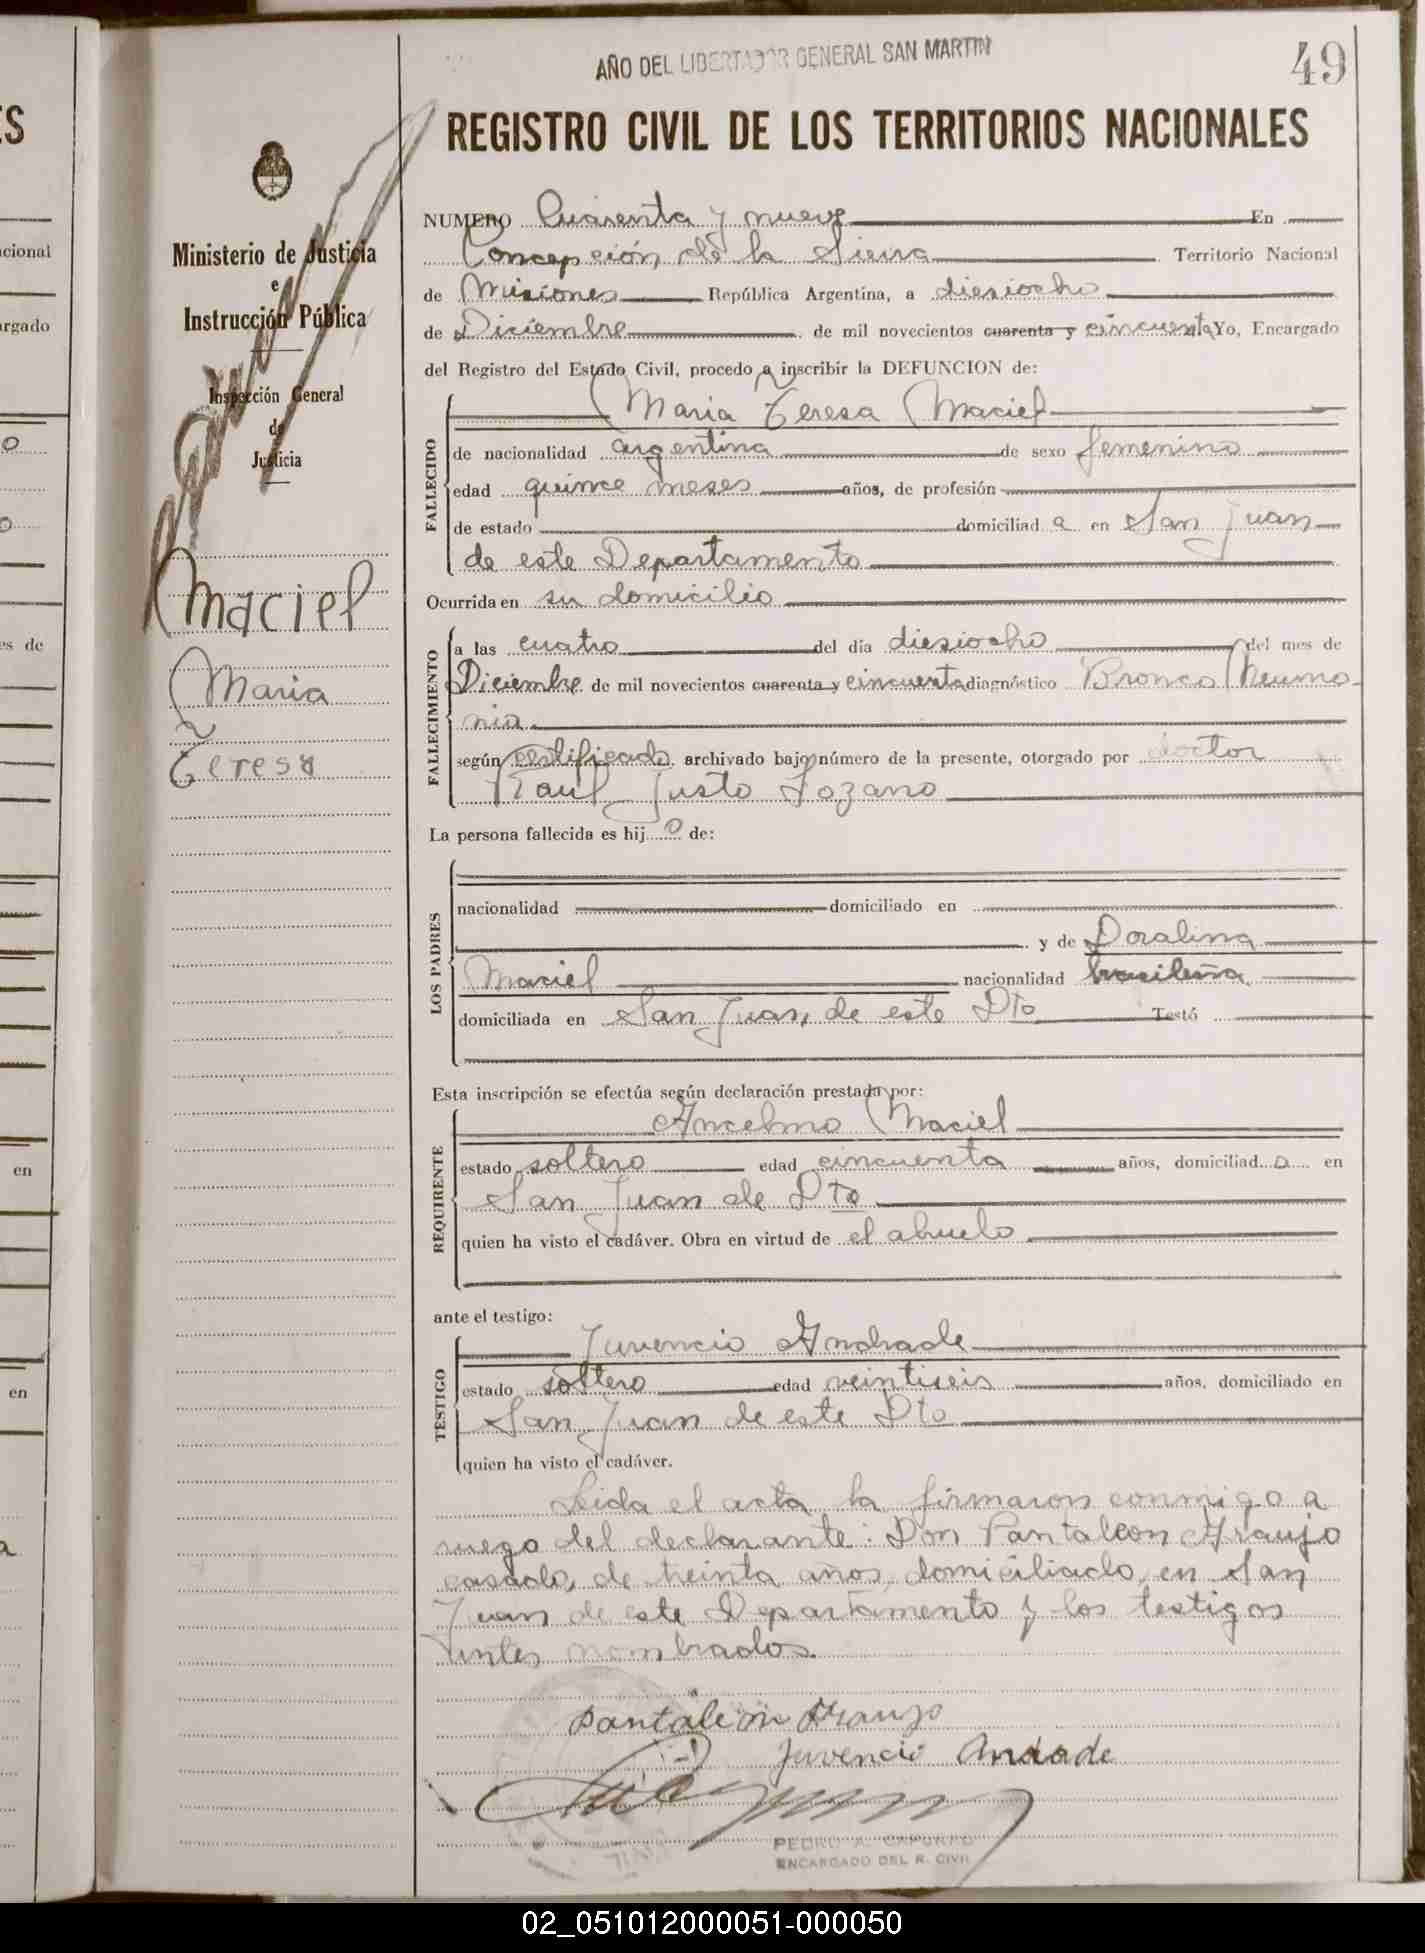 AÑO DEL LIBERTADOR GENERAL SAN MARTIN
49
REGISTRO CIVIL DE LOS TERRITORIOS NACIONALES
Ministerio de Justicia
e
Instrucción Pública
Inspección General
de
Justicia
Maciel
Maria
Teresa
NUMERO Cuarenta y nueve En
Concepción de la Sierra Territorio Nacional
de Misiones República Argentina, a diesiocho
de Diciembre de mil novecientos cuarenta y cincuenta Yo, Encargado
del Registro del Estado Civil, procedo a inscribir la DEFUNCION de:
FALLECIDO
Maria Teresa Maciel
de nacionalidad argentina de sexo femenino
edad quince meses años, de profesión
de estado domiciliad a en San Juan
de este Departamento
Ocurrida en su domicilio
FALLECIMIENTO
a las cuatro del día diesiocho del mes de
Diciembre de mil novecientos cuarenta y cincuenta diagnóstico Bronco Neumo-
nia
según certificado archivado bajo número de la presente, otorgado por doctor
Raul Justo Lozano
La persona fallecida es hij o de:
LOS PADRES
nacionalidad domiciliado en
y de Doralina
Maciel nacionalidad brasileña
domiciliada en San Juan, de este Dto Testó
Esta inscripción se efectúa según declaración prestada por:
REQUIRENTE
Ancelmo Maciel
estado soltero edad cincuenta años, domiciliad o en
San Juan de Dto
quien ha visto el cadáver. Obra en virtud de el abuelo
ante el testigo:
TESTIGO
Juvencio Andrade
estado soltero edad veintiseis años, domiciliado en
San Juan de este Dto
quien ha visto el cadáver.
Leida el acta la firmaron conmigo a
ruego del declarante: Don Pantaleon Araujo
casado, de treinta años, domiciliado en San
Juan de este Departamento y los testigos
antes nombrados.
Pantaleon Araujo
Juvencio Andrade
PEDRO A. CAPURRO
ENCARGADO DEL R. CIVIL
ES
cional
argado
es de
en
en
02_051012000051-000050